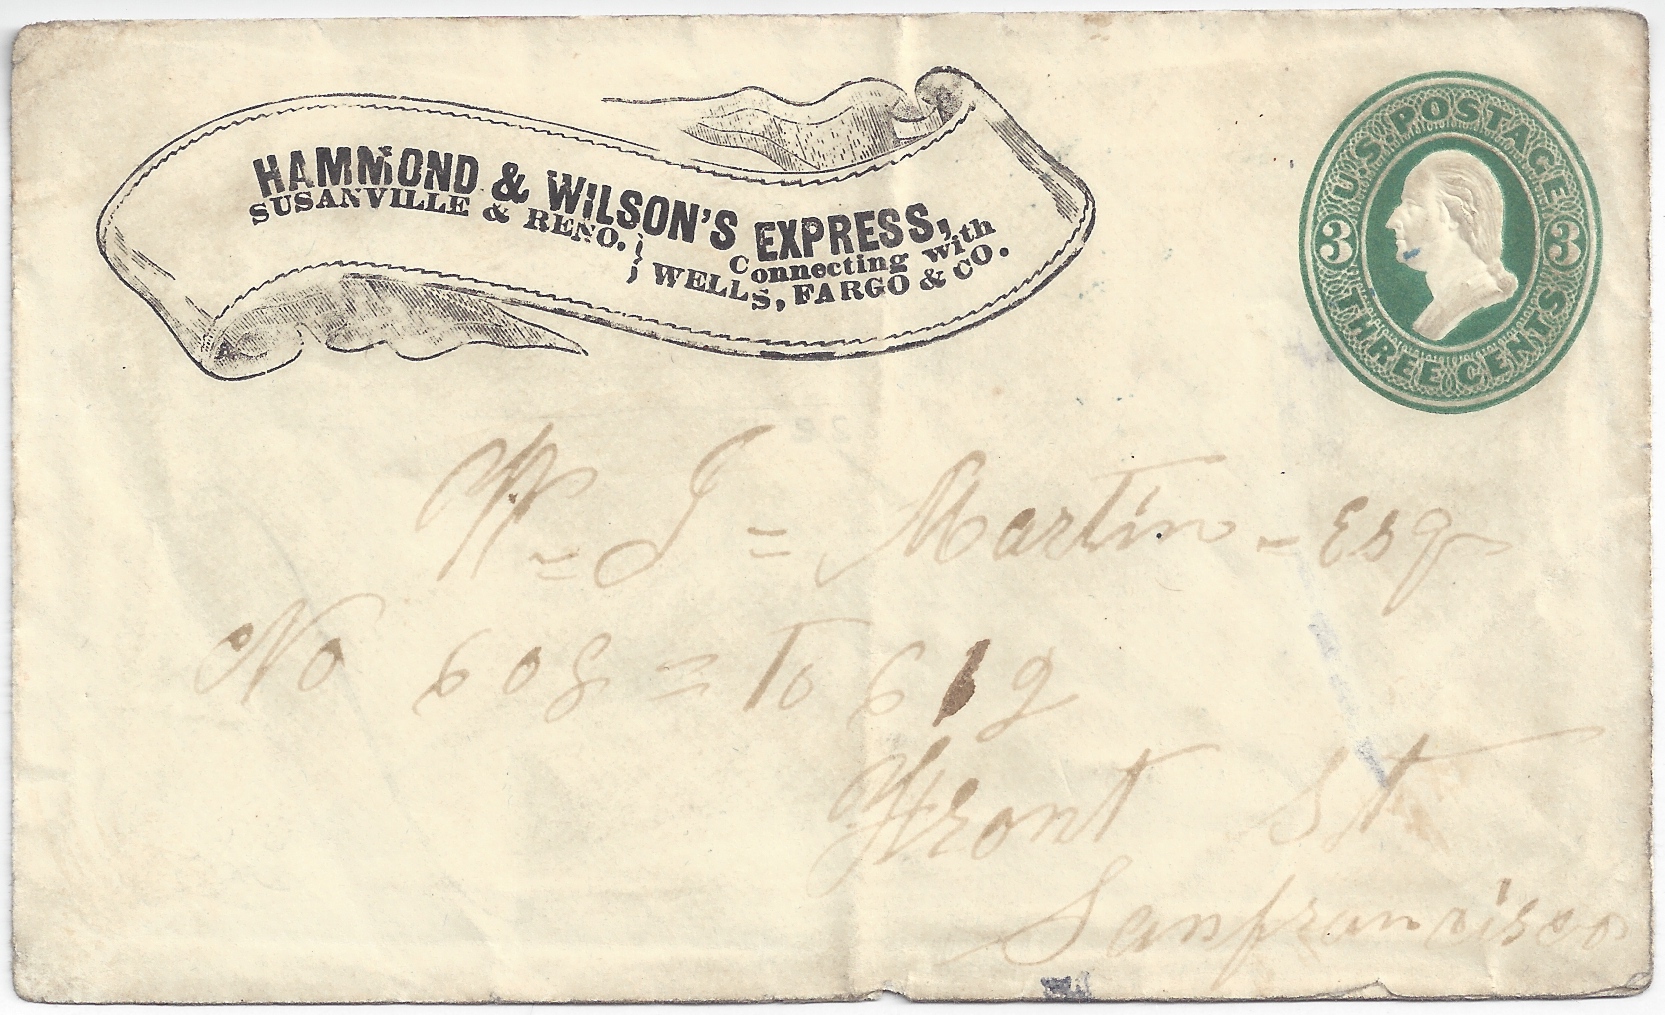 HAMMOND & WILSON'S EXPRESS,
SUSANVILLE & RENO.
Connecting with
WELLS, FARGO & CO.
U.S. POSTAGE
3 3
THREE CENTS
W = J = Martin - Esq
No 608 = To 612
Front St
Sanfrancisco